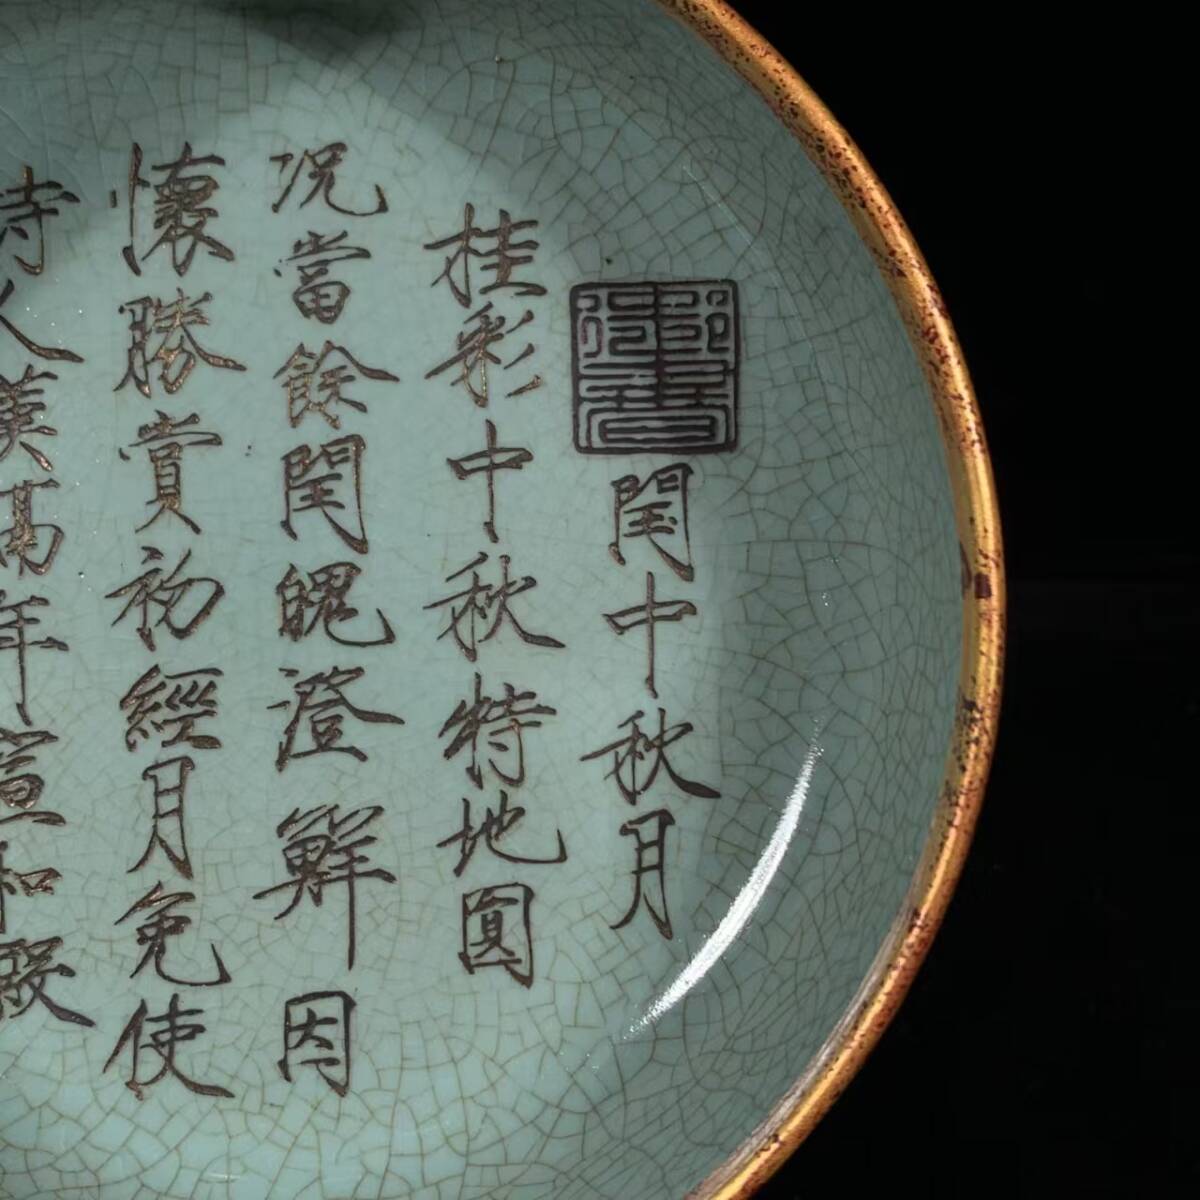 御書
閏中秋月
桂彩中秋特地圓
况當餘閏魄澄鮮因
懷勝賞初經月免使
詩人嘆隔年宣和殿